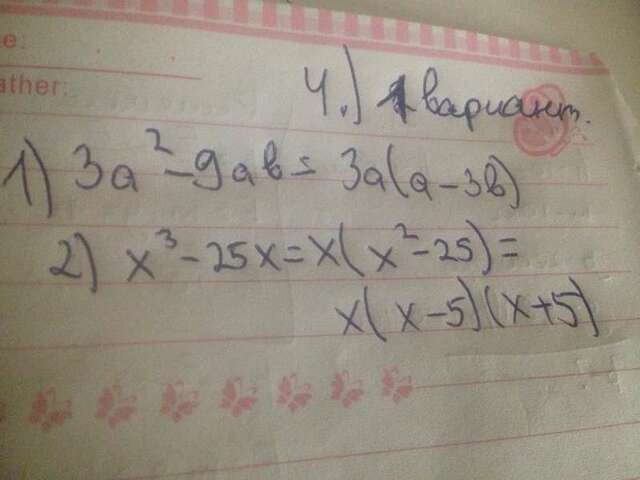 ather:
e:
4.) 1 вариант.
1) 3a² - 9ab = 3a(a - 3b)
2) x³ - 25x = x(x² - 25) =
x(x - 5)(x + 5)